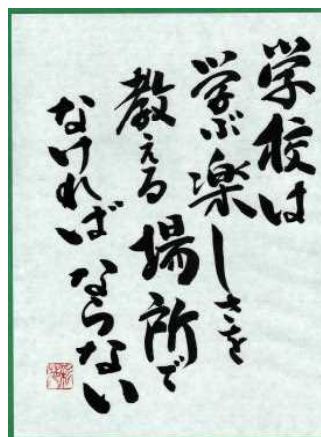 学校は
学ぶ楽しさを
教える場所で
なければならない